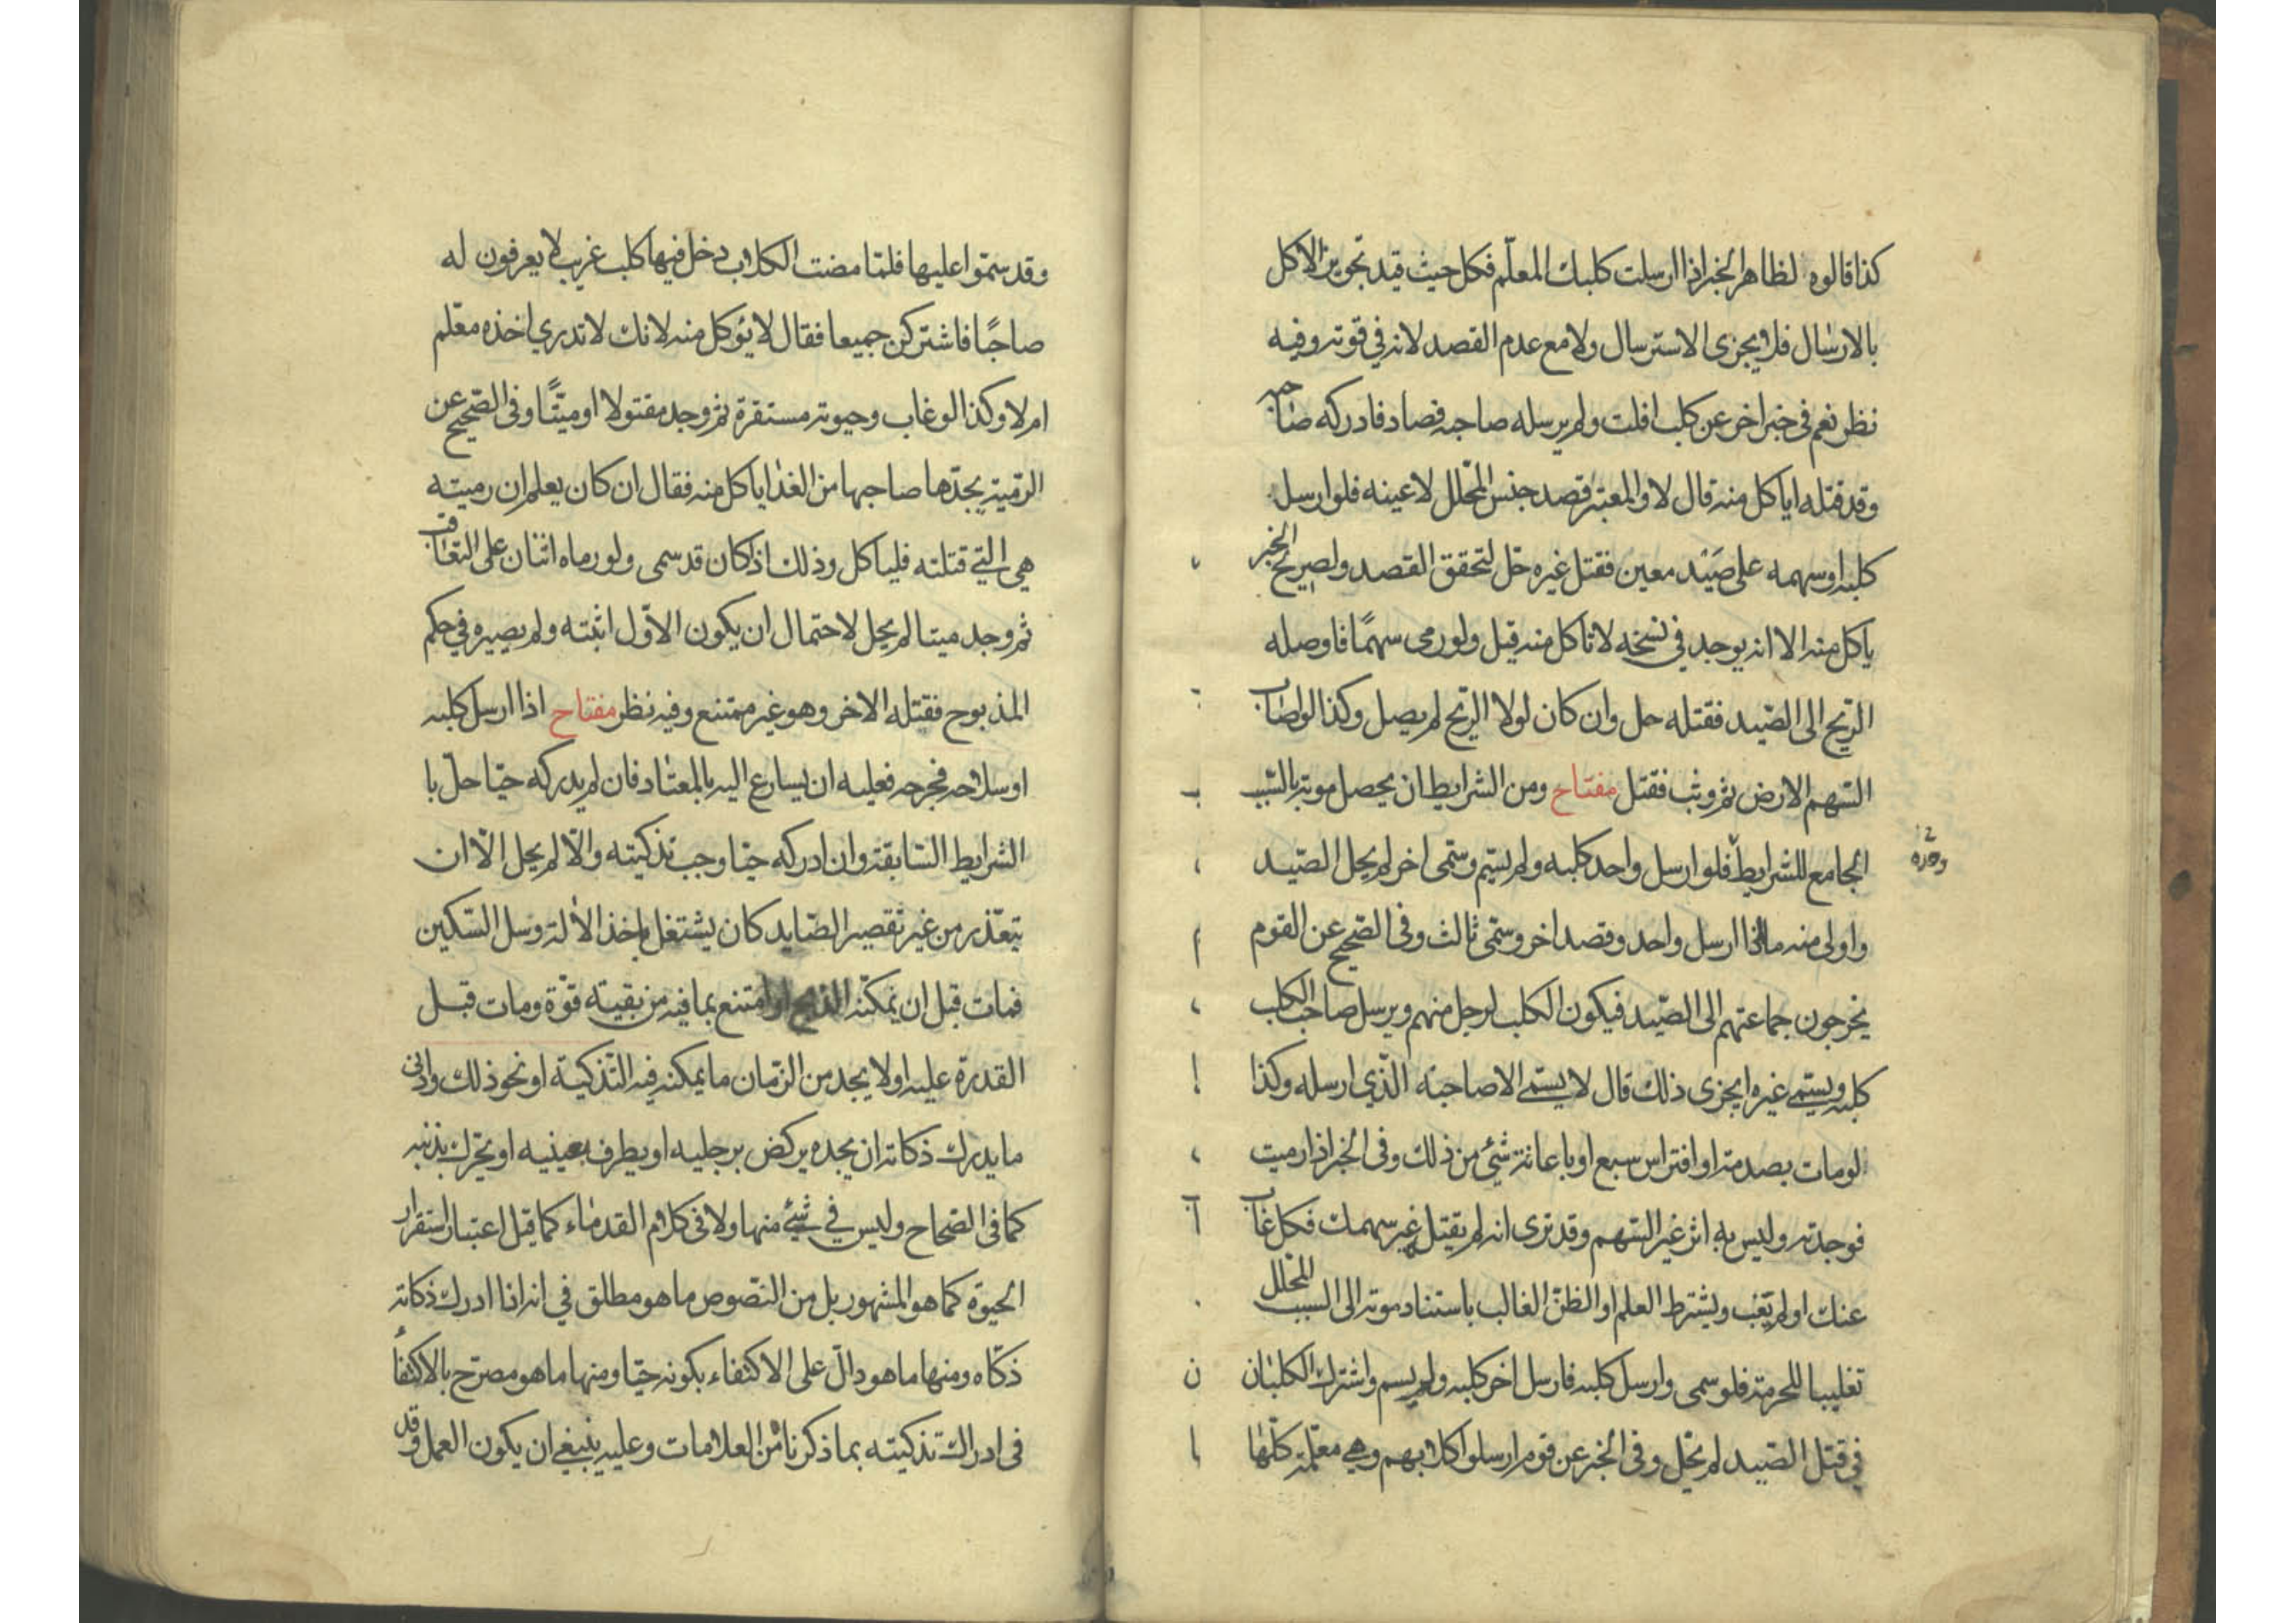 كذا قالوه لظاهر الخبر اذا ارسلت كلبك المعلّم فكل حيث قيد تجويز الاكل
بالارسال فلا يجزى الاسترسال ولا مع عدم القصد لانه في قوته وفيه
نظر نعم في خبر اخر عن كلب افلت ولم يرسله صاحبه فصاد فادركه صاحبه
وقد قتله اياكل منه قال لا والمعتبر قصد جنس المحلّل لا عينه فلو ارسل
كلبه او سهمه على صَيْد معين فقتل غيره حلّ لتحقق القصد ولصريح الخبر
ياكل منه الا انه يوجد في نسخه لا تاكل منه قيل ولو رمى سهمًا فاوصله
الريح الى الصّيد فقتله حل وان كان لولا الريح لم يصل وكذا لو اصاب
السّهم الارض ثم وثب فقتل مفتاح ومن الشرايط ان يحصل موته بالسّبب
الجامع للشرايط فلو ارسل واحد كلبه ولم يسّم وسمّى اخر لم يحل الصّيد
وحده
واولى منه ما اذا ارسل واحد وقصد اخر وسمّى ثالث وفى الصّحيح عن القوم
يخرجون جماعتهم الى الصّيد فيكون الكلب لرجل منهم ويرسل صاحب الكلب
كلبه ويسمّى غيره ايجزى ذلك قال لا يسمّى الا صاحبه الّذي ارسله وكذا
لو مات بصدمة او افتراس سبع او باعانة شئ من ذلك وفى الخبر اذا رميت
فوجدته وليس به اثر غير السّهم وقد ترى انه لم يقتله غير سهمك فكل غاب
عنك او لم يَغب ويشترط العلم او الظنّ الغالب باستناد موته الى السبب المحلّل
تغليبا للحرمة فلو سمى وارسل كلبه فارسل اخر كلبه ولم يسم واشترك الكلبان
في قتل الصّيد لم يحّل وفى الخبر عن قوم ارسلوا كلابهم وهي معلّمة كلّها
وقد سمّوا عليها فلمّا مضت الكلاب دخل فيها كلب غريب لا يعرفون له
صاحبًا فاشتركن جميعا فقال لا يؤكل منه لانك لا تدري اخذه معّلم
ام لا وكذا لو غاب وحيوته مستقرة ثم وجد مقتولا او ميتًّا وفى الصّحيح عن
الرّمية يجدّها صاحبها من الغدا ياكل منه فقال ان كان يعلم ان رميته
هي الّتي قتلته فلياكل وذلك اذا كان قد سمى ولو رماه اثنان على التعاقب
ثم وجد ميتا لم يحل لاحتمال ان يكون الاوّل اثبته ولم يصيره في حكم
المذبوح فقتله الاخر وهو غير ممتنع وفيه نظر مفتاح اذا ارسل كلبه
او سلاحه فجرحه فعليه ان يسارع اليه بالمعتاد فان لم يدركه حيّا حلّ با
الشرايط السّابقة وان ادركه حيّا وجب تذكيته والّا لم يحل الّا ان
يتعّذر من غير تقصير الصّايد كان يشتغل باخذ الالة وسل السّكين
فمات قبل ان يمكنّه الذبح او امتنع بما فيه من بقيته قوّة ومات قبل
القدرة عليه او لا يجد من الزّمان ما يمكنه فيه التّذكية او نحو ذلك وادنى
ما يدرك ذكاته ان يجده يركض برجليه او يطرف بعينيه او يحّرك بذنبه
كما فى الصّحاح وليس في شئ منها ولا فى كلام القدماء كما قيل اعتبار استقرار
الحيوة كما هو المشهور بل من النّصوص ما هو مطلق في انه اذا ادرك ذكاته
ذكّاه ومنها ما هو دالّ على الاكتفاء بكونه حيّا ومنها ما هو مصرّح بالاكتفاء
فى ادراك تذكيته بما ذكرنا من العلامات وعليه ينبغي ان يكون العمل وقد